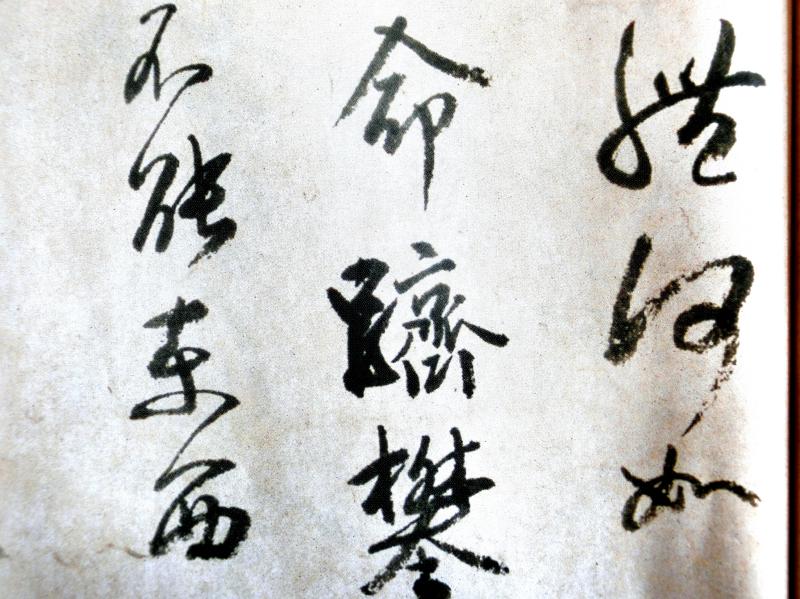 體何如
命躋攀
不能東西